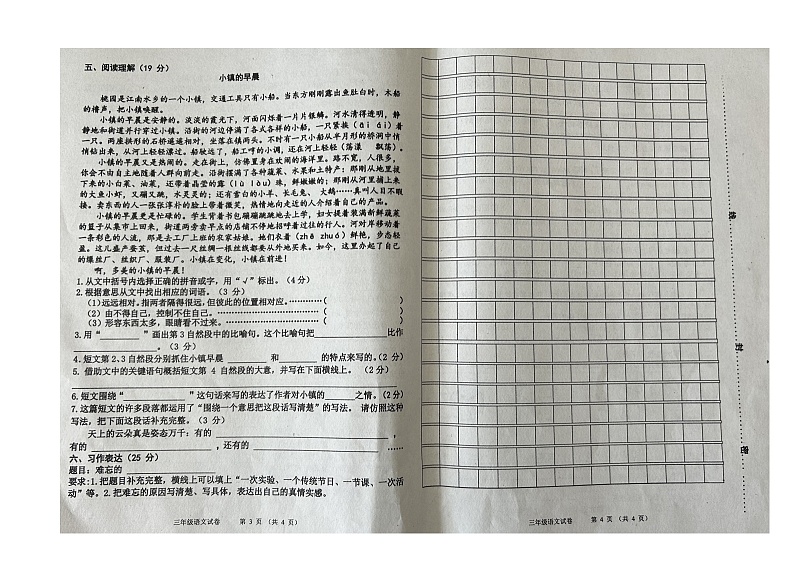 五、阅读理解（19 分）
小镇的早晨
桃园是江南水乡的一个小镇，交通工具只有小船。当东方刚刚露出鱼肚白时，木船
的槽声，把小镇唤醒。
小镇的早晨是安静的。淡淡的霞光下，河面闪烁着一片片银鳞。河水清得透明，静
静地和街道并行穿过小镇。沿街的河边停满了各式各样的小船，一只紧挨（āi ái）着
一只。两座拱形的石桥遥遥相对，坐落在镇两头。不时有一只小船从半月形的桥洞中悄
悄钻出来，从河上轻轻漂过。船驶远了，船工哼的小调，还在河上轻轻（荡漾 飘荡）。
小镇的早晨又是热闹的。走在街上，仿佛置身在欢闹的海洋里。路不宽，人很多，
你会不由自主地随着人群向前走。沿街都是卖蔬菜、水果和土特产：那刚从地里拔
下来的小白菜、油菜，还带着晶莹的露（lù lòu）珠，鲜嫩嫩的；那刚从河里捕上来
的大鱼小虾，又蹦又跳，水灵灵的；还有雪白的小羊、长毛兔、 大鹅……真叫人目不暇
接。卖东西的人一张张淳朴的脸上带着微笑，热情地向走近的人介绍着自己的产品。
小镇的早晨更是忙碌的。学生背着书包蹦蹦跳跳地去上学，妇女提着装满新鲜蔬菜
的篮子从集市上回来，街道两旁卖早点的店铺不停地招呼着过往的行人。河岸移动着
一条彩色的人流，那是去工厂上班的农家姑娘。她们衣着（zhā zhuó）鲜艳，步态轻
盈。这儿盛产蚕茧，但过去一尺丝绸一根丝线都要从外地买。如今，这里办起了自己
的缫丝厂、丝织厂、服装厂。小镇在变化，小镇在前进！
啊，多美的小镇的早晨！
1.从文中括号内选择正确的拼音或字，用“√”标出。（4分）
2.根据意思从文中找出相应的词语。（3 分）
（1）远远相对。指两者隔得很远，但彼此的位置相对应。…………（ ）
（2）由不得自己，控制不住自己。……………………………（ ）
（3）形容东西太多，眼睛看不过来。……………………………（ ）
3.用“________ ”画出第3自然段中的比喻句。这个比喻句把________________比作
________。（3 分）
4.短文第2、3自然段分别抓住小镇早晨 ________ 和________ 的特点来写的。（2 分）
5. 借助文中的关键语句概括短文第 4 自然段的大意，并写在下面横线上。 （2分）
________________________________________________
6.短文围绕“ ____________ ”这句话来写的表达了作者对小镇的______之情。（2分）
7.这篇短文的许多段落都运用了“围绕一个意思把这段话写清楚”的写法。 请仿照这种
写法，把下面这段话补充完整。（3 分）
天上的云朵真是姿态万千：有的 ________________________________ ，
有的 ________________ ，还有的 ________________ ……
六、习作表达（25 分）
题目：难忘的 ________________
要求：1.把题目补充完整，横线上可以填上“一次实验、一个传统节日、一节课、一次活
动”等。2.把难忘的原因写清楚、写具体，表达出自己的真情实感。
三年级语文试卷 第 3 页 （共 4 页）
三年级语文试卷 第 4 页 （共 4 页）
封
密